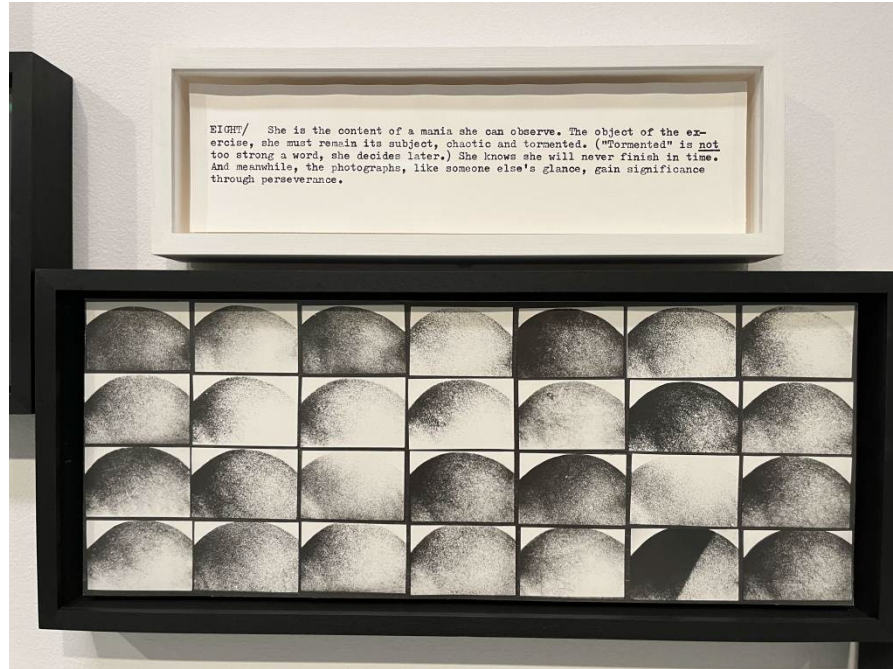 EIGHT/ She is the content of a mania she can observe. The object of the ex-
ercise, she must remain its subject, chaotic and tormented. ("Tormented" is not
too strong a word, she decides later.) She knows she will never finish in time.
And meanwhile, the photographs, like someone else's glance, gain significance
through perseverance.